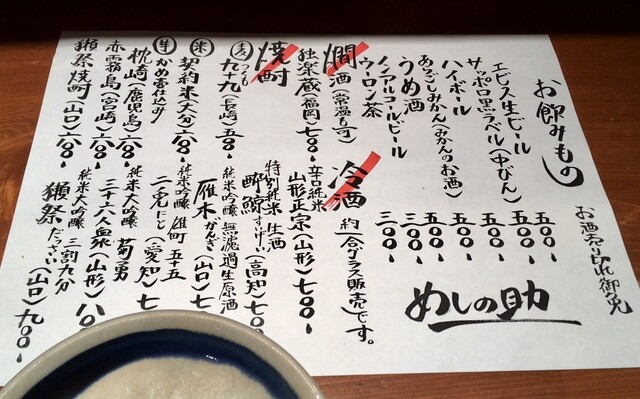 お飲みもの
お酒売り切れ御免
エビス生ビール 五〇〇
サッポロ黒ラベル(中びん) 五〇〇
ハイボール 五〇〇
あらごしみかん(みかんのお酒) 五〇〇
うめ酒 五〇〇
ノンアルコールビール 五〇〇
ウーロン茶 三〇〇
めしの助
燗酒(常温も可)
独楽蔵(福岡) 七〇〇
冷酒 約一合グラス販売です。
辛口純米
山形正宗(山形) 七〇〇
特別純米 生酒
酔鯨 すいげい(高知) 七〇〇
純米吟醸 無濾過生原酒
雁木 がんぎ(山口) 七
純米吟醸 雄町 五五
二兎 にと(愛知) 七
純米大吟醸 菊勇
三十六人衆(山形) 八〇
純米大吟醸 三割九分
獺祭 だっさい(山口) 九〇〇
焼酎
麦 つくも
九十九(長崎) 五〇〇
米 契約米(大分) 六〇〇
芋 かめ壷仕込み
枕崎(鹿児島) 六〇〇
赤霧島(宮崎) 六〇〇
獺祭焼酎(山口) 六〇〇